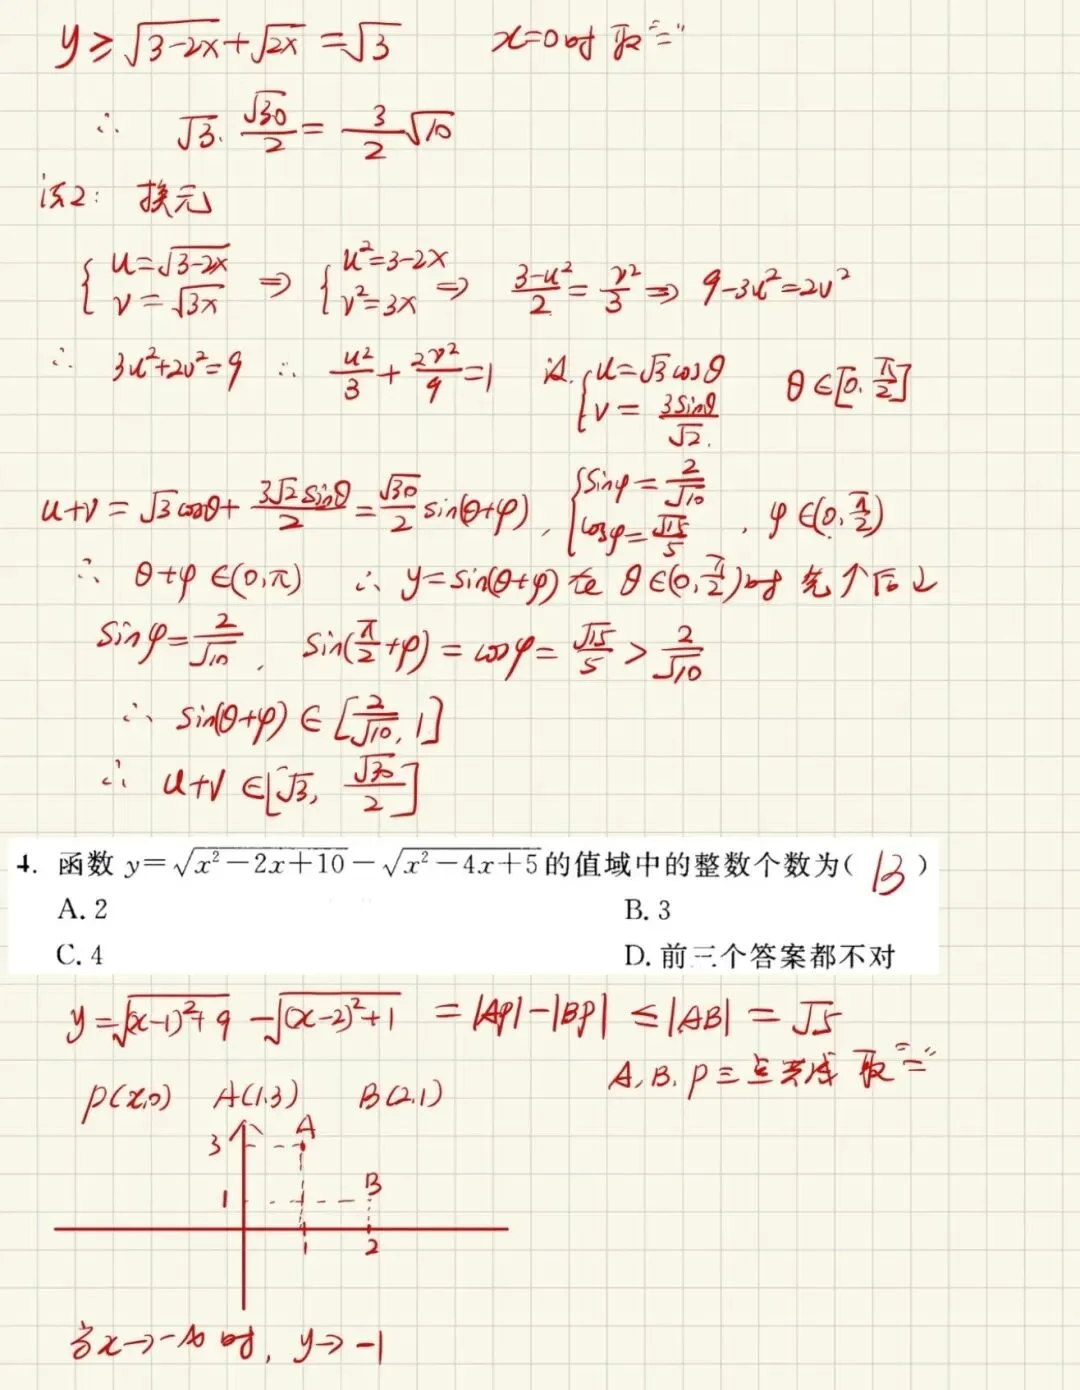 y ≥ √(3-2x) + √(2x) = √3 x=0时 取"="
∴ √3 · √30/2 = 3/2 √10
法2: 换元
{ u=√(3-2x) v=√(3x) ⇒ { u²=3-2x v²=3x ⇒ (3-u²)/2 = v²/3 ⇒ 9-3u²=2v²
∴ 3u²+2v²=9 ∴ u²/3 + 2v²/9 = 1 设 { u=√3 cosθ v = 3sinθ/√2 . θ∈[0, π/2]
u+v = √3 cosθ + 3√2 sinθ/2 = √30/2 sin(θ+φ) , { sinφ = 2/√10 cosφ = √15/5 , φ∈(0, π/2)
∴ θ+φ ∈(0,π) ∴ y=sin(θ+φ) 在 θ∈(0, π/2)时 先↑后↓
sinφ = 2/√10 , sin(π/2+φ) = cosφ = √15/5 > 2/√10
∴ sin(θ+φ) ∈ [2/√10, 1]
∴ u+v ∈[√3, √30/2]
4. 函数 y=√(x²-2x+10)-√(x²-4x+5)的值域中的整数个数为( B )
A. 2 B. 3
C. 4 D. 前三个答案都不对
y=√((x-1)²+9) -√((x-2)²+1) = |AP|-|BP| ≤ |AB| = √5
A, B, P三点共线 取"="
P(x,0) A(1,3) B(2,1)
3 A
1 B
1 2
当x→-∞时, y→-1